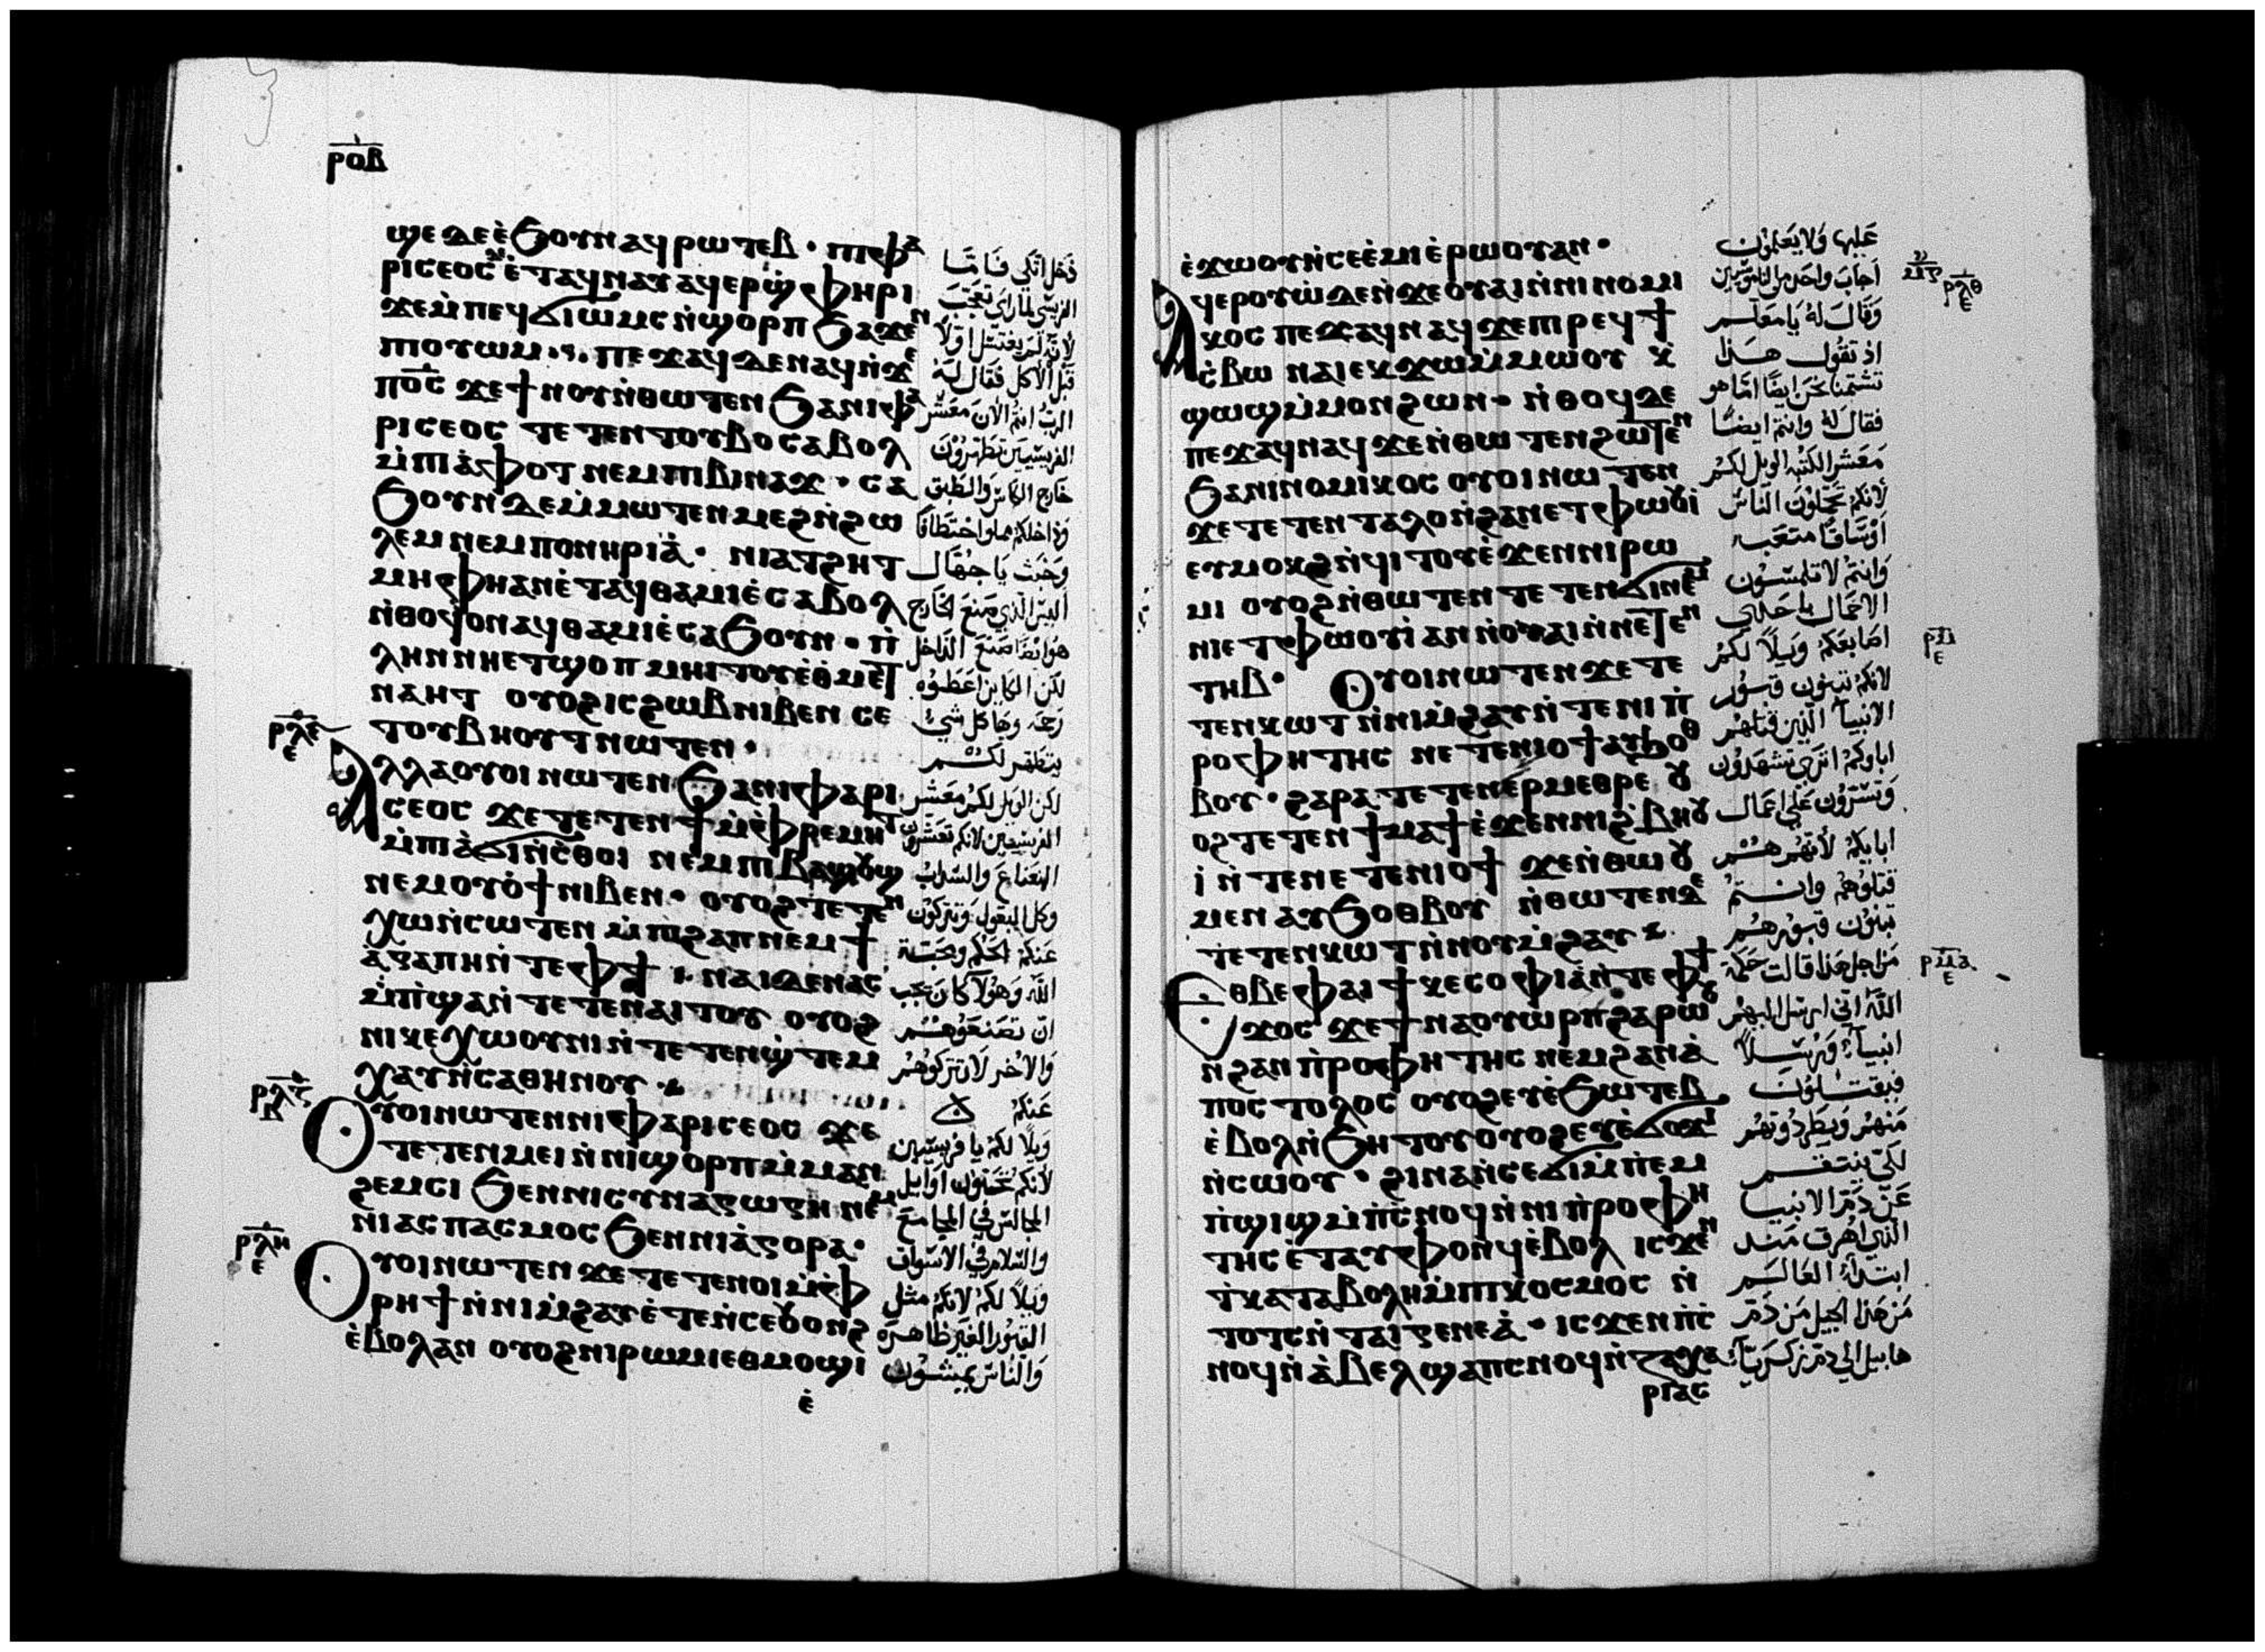 ⲣⲟⲃ
ϣⲉ ⲇⲉ ⲉ̀ϧⲟⲩⲛ ⲁϥⲣⲱⲧⲉⲃ · ⲡⲓⲫⲁ
ⲣⲓⲥⲉⲟⲥ ⲇⲉ ⲉ̀ⲧⲁϥⲛⲁⲩ ⲁϥⲉⲣϣ̀ⲫⲏⲣⲓ
ϫⲉ ⲙ̀ⲡⲉϥϭⲓⲱⲙⲥ ⲛ̀ϣⲟⲣⲡ ϧⲁϫⲉⲛ
ⲡⲓⲟⲩⲱⲙ · ⲡⲉϫⲁϥ ⲇⲉ ⲛⲁϥ ⲛ̀ϫⲉ
ⲡⲟ̅ⲥ̅ ϫⲉ ϯⲛⲟⲩ ⲛ̀ⲑⲱⲧⲉⲛ ϧⲁ ⲛⲓⲫⲁ
ⲣⲓⲥⲉⲟⲥ ⲧⲉⲧⲉⲛⲧⲟⲩⲃⲟ ⲥⲁⲃⲟⲗ
ⲙ̀ⲡⲓⲁ̀ⲫⲟⲧ ⲛⲉⲙ ⲡⲓⲃⲓⲛⲁϫ · ⲥⲁ
ϧⲟⲩⲛ ⲇⲉ ⲙ̀ⲙⲱⲧⲉⲛ ⲙⲉϩ ⲛ̀ϩⲱ
ⲗⲉⲙ ⲛⲉⲙ ⲡⲟⲛⲏⲣⲓⲁ̀ · ⲛⲓⲁⲧϩⲏⲧ
ⲙⲏ ⲫⲏ ⲁⲛ ⲉ̀ⲧⲁϥⲑⲁⲙⲓⲉ̀ ⲥⲁⲃⲟⲗ
ⲛ̀ⲑⲟϥ ⲟⲛ ⲁϥⲑⲁⲙⲓⲉ̀ ⲥⲁϧⲟⲩⲛ · ⲡ̀
ⲗⲏⲛ ⲛⲏⲉⲧϣⲟⲡ ⲙⲏⲓⲧⲟⲩ ⲉ̀ⲑⲙⲉⲧ
ⲛⲁⲏⲧ ⲟⲩⲟϩ ⲓⲥ ϩⲱⲃ ⲛⲓⲃⲉⲛ ⲥⲉ
ⲧⲟⲩⲃⲏⲟⲩⲧ ⲛⲱⲧⲉⲛ ·
ⲣⲗⲉ ⲉ
ⲁⲗⲗⲁ ⲟⲩⲟⲓ ⲛⲱⲧⲉⲛ ϧⲁ ⲛⲓⲫⲁⲣⲓ
ⲥⲉⲟⲥ ϫⲉ ⲧⲉⲧⲉⲛϯ ⲙ̀ⲫ̀ⲣⲉⲙⲏⲧ
ⲙ̀ⲡⲓⲁ̀ϭⲓⲛⲥ̀ⲑⲟⲓ ⲛⲉⲙ ⲡⲓⲃⲁϣⲟⲩϣ
ⲛⲉⲙ ⲟⲩⲟ̀ϯ ⲛⲓⲃⲉⲛ · ⲟⲩⲟϩ ⲧⲉⲧⲉⲛ
ⲭⲱ ⲛ̀ⲥⲱⲧⲉⲛ ⲙ̀ⲡⲓϩⲁⲡ ⲛⲉⲙ ϯ
ⲁ̀ⲅⲁⲡⲏ ⲛ̀ⲧⲉ ⲫϯ · ⲛⲁⲓ ⲇⲉ ⲛⲁⲥ
ⲙ̀ⲡ̀ϣⲁ ⲛ̀ⲧⲉⲧⲉⲛⲁⲓⲧⲟⲩ ⲟⲩⲟϩ
ⲛⲓⲕⲉⲭⲱⲟⲩⲛⲓ ⲛ̀ⲧⲉⲧⲉⲛϣ̀ⲧⲉⲙ
ⲭⲁⲩ ⲛ̀ⲥⲁⲑⲏⲛⲟⲩ ·
ⲣⲗⲋ ⲃ
ⲟⲩⲟⲓ ⲛⲱⲧⲉⲛ ⲛⲓⲫⲁⲣⲓⲥⲉⲟⲥ ϫⲉ
ⲧⲉⲧⲉⲛⲙⲉⲓ ⲛ̀ⲛⲓϣⲟⲣⲡ ⲙ̀ⲙⲁⲛ
ϩⲉⲙⲥⲓ ϧⲉⲛ ⲛⲓⲥⲩⲛⲁⲅⲱⲅⲏ ⲛⲉⲙ
ⲛⲓⲁⲥⲡⲁⲥⲙⲟⲥ ϧⲉⲛ ⲛⲓⲁ̀ⲅⲟⲣⲁ ·
ⲣⲗⲏ ⲉ
ⲟⲩⲟⲓ ⲛⲱⲧⲉⲛ ϫⲉ ⲧⲉⲧⲉⲛⲟⲓ ⲙ̀ⲫ̀
ⲣⲏϯ ⲛ̀ⲛⲓⲙ̀ϩⲁⲩ ⲉ̀ⲧⲉⲛ̀ⲥⲉⲟⲩⲟⲛϩ
ⲉ̀ⲃⲟⲗ ⲁⲛ ⲟⲩⲟϩ ⲛⲓⲣⲱⲙⲓ ⲉⲑⲙⲟϣⲓ
ⲉ̀
فدخل اتكى فاما
الفريسي لما راى تعجب
لانه لم يغتسل اولا
قبل الاكل فقال له
الرب انتم الان معشر
الفريسيين تطهرون
خارج الكاس والطبق
وداخلكم مملوا اختطافا
وخبث يا جهال
اليس الذي صنع الخارج
هو ايضا صنع الداخل
لكن الكاين اعطوه
رحمة وها كل شي
يتطهر لكم
لكن الويل لكم معشر
الفريسيين لانكم تعشرون
النعناع والسداب
وكل البقول وتتركون
عنكم الحكم ومحبة
الله وهولا كان يجب
ان تصنعوهم
والاخر لا تتركوهم
عنكم
ويلا لكم يا فريسيين
لانكم تحبون اوايل
المجالس في المجامع
والسلام في الاسواق
ويلا لكم لانكم مثل
القبور الغير ظاهرة
والناس يمشون
ⲉ̀ϫⲱⲟⲩ ⲛ̀ⲥⲉⲉ̀ⲙⲓ ⲉ̀ⲣⲱⲟⲩ ⲁⲛ ·
ⲁϥⲉⲣⲟⲩⲱ̀ ⲇⲉ ⲛ̀ϫⲉ ⲟⲩⲁⲓ ⲛ̀ⲛⲓⲛⲟⲙⲓ
ⲕⲟⲥ ⲡⲉϫⲁϥ ⲛⲁϥ ϫⲉ ⲡⲓⲣⲉϥϯ
ⲥ̀ⲃⲱ ⲛⲁⲓ ⲉⲕϫⲱ ⲙ̀ⲙⲱⲟⲩ ⲕ̀
ϣⲱϣ ⲙ̀ⲙⲟⲛ ϩⲱⲛ · ⲛ̀ⲑⲟϥ ⲇⲉ
ⲡⲉϫⲁϥ ⲛⲁϥ ϫⲉ ⲛ̀ⲑⲱⲧⲉⲛ ϩⲱⲧⲉⲛ
ϧⲁ ⲛⲓⲛⲟⲙⲓⲕⲟⲥ ⲟⲩⲟⲓ ⲛⲱⲧⲉⲛ
ϫⲉ ⲧⲉⲧⲉⲛⲧⲁⲗⲟ ⲛ̀ϩⲁⲛⲉⲧⲫⲱⲟⲩⲓ
ⲉⲩⲙⲟⲕϩ ⲛ̀ϥⲓⲧⲟⲩ ⲉ̀ϫⲉⲛ ⲛⲓⲣⲱ
ⲙⲓ ⲟⲩⲟϩ ⲛ̀ⲑⲱⲧⲉⲛ ⲧⲉⲧⲉⲛϭⲓⲛⲉⲙ
ⲛⲓⲉⲧⲫⲱⲟⲩⲓ̀ ⲁⲛ ⲛ̀ⲟⲩⲁⲓ ⲛ̀ⲛⲉⲧⲉⲛ
ⲧⲏⲃ · ⲟⲩⲟⲓ ⲛⲱⲧⲉⲛ ϫⲉ ⲧⲉ
ⲧⲉⲛⲕⲱⲧ ⲛ̀ⲛⲓⲙ̀ϩⲁⲩ ⲛ̀ⲧⲉ ⲛⲓⲡ̀
ⲣⲟⲫⲏⲧⲏⲥ ⲛⲉⲧⲉⲛⲓⲟϯ ⲁⲩϧⲟⲑ
ⲃⲟⲩ · ϩⲁⲣⲁ ⲧⲉⲧⲉⲛⲉⲣⲙⲉⲑⲣⲉ ⲟⲩ
ⲟϩ ⲧⲉⲧⲉⲛϯⲙⲁϯ ⲉ̀ϫⲉⲛ ⲛⲓϩⲃⲏⲟⲩ
ⲓ̀ ⲛ̀ⲧⲉ ⲛⲉⲧⲉⲛⲓⲟϯ ϫⲉ ⲛ̀ⲑⲱⲟⲩ
ⲙⲉⲛ ⲁⲩϧⲟⲑⲃⲟⲩ ⲛ̀ⲑⲱⲧⲉⲛ ⲇⲉ
ⲧⲉⲧⲉⲛⲕⲱⲧ ⲛ̀ⲛⲟⲩⲙ̀ϩⲁⲩ
ⲉⲑⲃⲉ ⲫⲁⲓ ϯⲕⲉⲥⲟⲫⲓⲁ̀ ⲛ̀ⲧⲉ ⲫϯ
ⲁⲥϫⲟⲥ ϫⲉ ϯⲛⲁⲟⲩⲱⲣⲡ ϩⲁⲣⲱⲟⲩ
ⲛ̀ϩⲁⲛⲡ̀ⲣⲟⲫⲏⲧⲏⲥ ⲛⲉⲙ ϩⲁⲛⲁ̀
ⲡⲟⲥⲧⲟⲗⲟⲥ ⲟⲩⲟϩ ⲉⲩⲉ̀ϧⲱⲧⲉⲃ
ⲉ̀ⲃⲟⲗ ⲛ̀ϧⲏⲧⲟⲩ ⲟⲩⲟϩ ⲉⲩⲉ̀ϭⲟϫⲓ
ⲛ̀ⲥⲱⲟⲩ · ϩⲓⲛⲁ ⲛ̀ⲥⲉϭⲓ ⲙ̀ⲡ̀ⲉⲙ
ⲡ̀ϣⲓϣ ⲙ̀ⲡ̀ⲥⲛⲟϥ ⲛ̀ⲛⲓⲡ̀ⲣⲟⲫⲏ
ⲧⲏⲥ ⲉ̀ⲧⲁⲩⲫⲟⲛϥ ⲉ̀ⲃⲟⲗ ⲓⲥϫⲉⲛ
ⲧ̀ⲕⲁⲧⲁⲃⲟⲗⲏ ⲙ̀ⲡⲓⲕⲟⲥⲙⲟⲥ ⲛ̀
ⲧⲟⲧⲥ ⲛ̀ⲧⲁⲓⲅⲉⲛⲉⲁ̀ · ⲓⲥϫⲉⲛ ⲡ̀ⲥ̀
ⲛⲟϥ ⲛ̀ⲁ̀ⲃⲉⲗ ϣⲁ ⲡⲥⲛⲟϥ ⲛ̀ⲍⲁⲭⲁ
ⲣⲓⲁⲥ
عليها ولا يعلمون
اجاب واحد من الناموسيين
وقال له يا معلم
اذ تقول هذا
تشتمنا نحن ايضا اما هو
فقال له وانتم ايضا
معشر الكتبة الويل لكم
لانكم تحملون الناس
اوساقا متعبة
وانتم لا تلمسون
الاحمال باحدى
اصابعكم ويلا لكم
لانكم تبنون قبور
الانبيا الذين قتلهم
اباوكم اترى تشهدون
وتسرون على اعمال
ابايكم لانهم هم
قتلوهم وانتم
تبنون قبورهم
من اجل هذا قالت حكمة
الله اني ارسل اليهم
انبياء ورسلا
فيقتلون
منهم ويطردونهم
لكي ينتقم
عن دم الانبيا
الذي اهرق منذ
ابتداء العالم
من هذا الجيل من دم
هابيل الى دم زكرياء
ⲣⲗⲑ ⲉ
ⲣⲙ ⲉ
ⲣⲙⲁ ⲉ